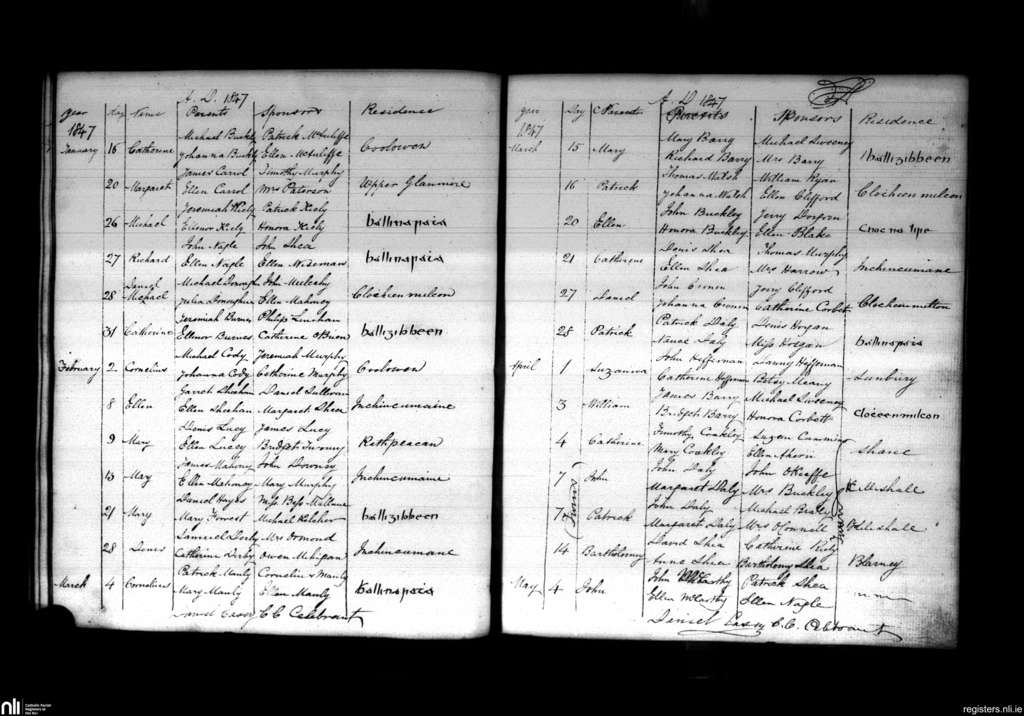 A. D. 1847
Year Day Name Parents Sponsors Residence
1847
Michael Buckly Patrick McAuliffe
January 16 Catherine Johanna Buckly Ellen McAuliffe Coolowen
James Carrol Timothy Murphy
20 Margaret Ellen Carrol Mrs Paterson Upper Glanmire
Jeremiah Kiely Patrick Kiely
26 Michael Elienor Kiely Honora Kiely ballinapsia
John Nagle John Shea
27 Richard Ellen Nagle Ellen Wiseman ballinapsia
Daniel Michael Donough John Mulcahy
28 Michael Julia Donoughue Ellen Mahoney Clocheenmilcon
Jeremiah Burns Philip Linehan
31 Catherine Ellenor Burnes Catherine OBrien ballizibbeen
Michael Cody Jeremiah Murphy
February 2 Cornelius Johanna Cody Catherine Murphy Coolowen
Garret Sheehan Daniel Sullivan
8 Ellen Ellen Sheehan Margaret Shea Inchincumaine
Denis Lucy James Lucy
9 Mary Ellen Lucey Bridget Rathpeacan
James Mahony John Downey
13 Mary Ellen Mahoney Mary Murphy Inchincumaine
Daniel Hayes Miss Bess
21 Mary Mary Forrest Michael Kelleher ballizibbeen
Samuel Derby Mrs Ormond
28 Denis Catherine Derby Owen Mehigan Inchincumane
Patrick Manly Cornelius Manly
March 4 Cornelius Mary Manly Ellen Manly ballinapsia
Daniel C C Celebrant
A D 1847
Year Day Parents Sponsors Residence
1847
Mary Barry Michael Sweeney
March 15 Mary Richard Barry Mrs Barry ballizibbeen
Thomas Walsh William Ryan
16 Patrick Johanna Walsh Ellen Clifford Clocheenmilcon
John Buckley Jerry
20 Ellen Honora Buckley Ellen Blake
Denis Shea Thomas Murphy
21 Catherine Ellen Shea Mrs Harrow Inchincumiane
John Cronen Jerry Clifford
27 Daniel Johanna Cronen Catherine Corbett Clocheenmilton
Patrick Daly Denis Horgan
28 Patrick Nance Daly Miss Horgan ballinapsia
John Heffernan Nanny Heffernan
April 1 Suzanna Catherine Heffernan Betsy Meany Sunbury
James Barry Michael Sweeney
3 William Bridget Barry Honora Corbett cloceenmilcon
Timothy Coakley Eugen Cummins
4 Catherine Mary Coakley Ellen Ahern Shane
John Daly John OKeeffe
7 John Margaret Daly Mrs Buckley Killeshall
Twins
John Daly Michael
7 Patrick Margaret Daly Mrs OConnell Killeshall
Twins
David Shea Catherine
14 Bartholomy Anne Shea Bartholomy Shea Blarney
John McCarthy Patrick Shea
May 4 John Ellen McCarthy Ellen Nagle " "
Daniel C. C. Celebrant
nli
Catholic Parish
Registers at
the NLI
registers.nli.ie